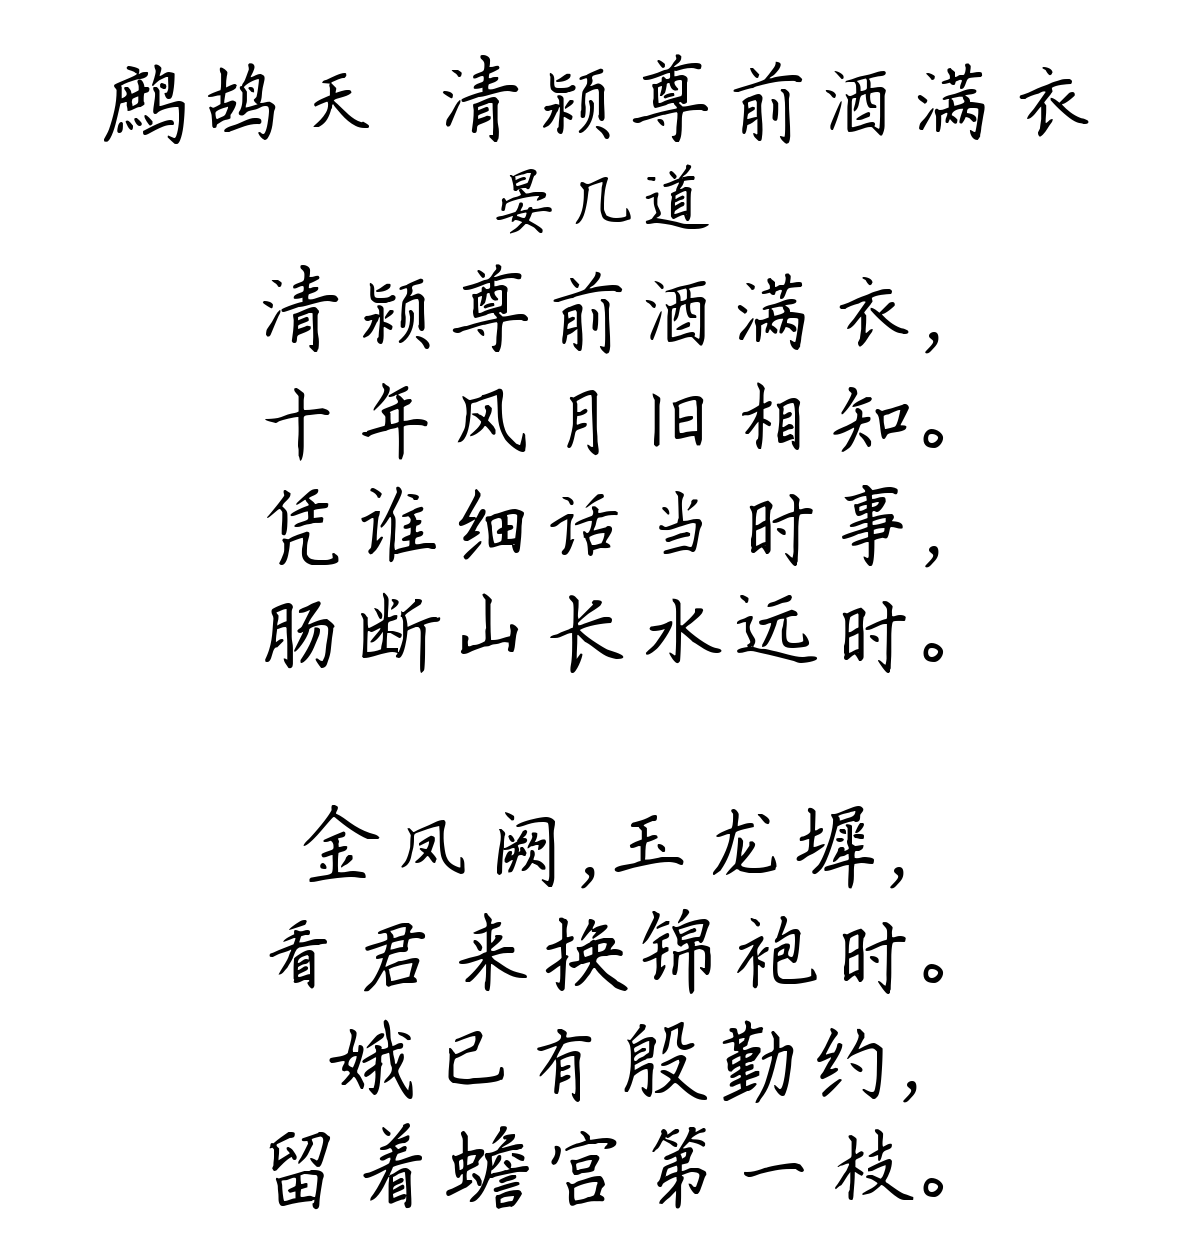 鹧鸪天 清颍尊前酒满衣
晏几道
清颍尊前酒满衣，
十年风月旧相知。
凭谁细话当时事，
肠断山长水远时。
金凤阙，玉龙墀，
看君来换锦袍时。
娥已有殷勤约，
留着蟾宫第一枝。